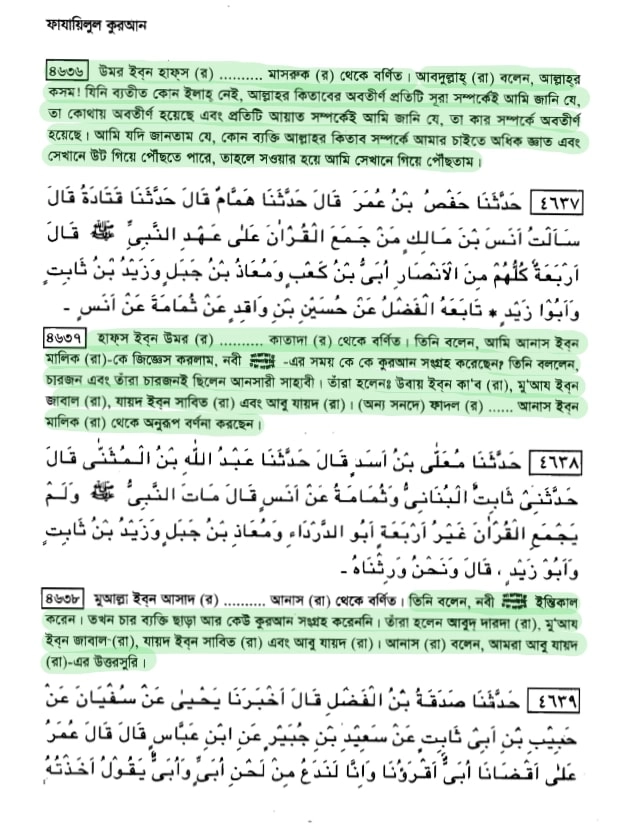 ফাযায়িলুল কুরআন
৪৬৩৬ উমর ইব্‌ন হাফ্‌স (র) .......... মাসরুক (র) থেকে বর্ণিত। আবদুল্লাহ্ (রা) বলেন, আল্লাহ্‌র
কসম! যিনি ব্যতীত কোন ইলাহ্ নেই, আল্লাহ্‌র কিতাবের অবতীর্ণ প্রতিটি সূরা সম্পর্কেই আমি জানি যে,
তা কোথায় অবতীর্ণ হয়েছে এবং প্রতিটি আয়াত সম্পর্কেই আমি জানি যে, তা কার সম্পর্কে অবতীর্ণ
হয়েছে। আমি যদি জানতাম যে, কোন ব্যক্তি আল্লাহ্‌র কিতাব সম্পর্কে আমার চাইতে অধিক জ্ঞাত এবং
সেখানে উট গিয়ে পৌঁছতে পারে, তাহলে সওয়ার হয়ে আমি সেখানে গিয়ে পৌঁছতাম।
٤٦٣٧ حَدَّثَنَا حَفْصُ بْنُ عُمَرَ قَالَ حَدَّثَنَا هَمَّامٌ قَالَ حَدَّثَنَا قَتَادَةُ قَالَ
سَاَلْتُ اَنَسَ بْنَ مَالِكٍ مَنْ جَمَعَ الْقُرْاٰنَ عَلٰى عَهْدِ النَّبِىِّ ﷺ قَالَ
اَرْبَعَةٌ كُلُّهُمْ مِنَ الْاَنْصَارِ اُبَىُّ بْنُ كَعْبٍ وَمُعَاذُ بْنُ جَبَلٍ وَزَيْدُ بْنُ ثَابِتٍ
وَاَبُوْا زَيْدٍ * تَابَعَهُ الْفَضْلُ عَنْ حُسَيْنِ بْنِ وَاقِدٍ عَنْ ثُمَامَةَ عَنْ اَنَسٍ -
৪৬৩৭ হাফ্‌স ইব্‌ন উমর (র) .......... কাতাদা (র) থেকে বর্ণিত। তিনি বলেন, আমি আনাস ইব্‌ন
মালিক (রা)-কে জিজ্ঞেস করলাম, নবী ﷺ -এর সময় কে কে কুরআন সংগ্রহ করেছেন? তিনি বললেন,
চারজন এবং তাঁরা চারজনই ছিলেন আনসারী সাহাবী। তাঁরা হলেনঃ উবায় ইব্‌ন কা'ব (রা), মু'আয ইব্‌ন
জাবাল (রা), যায়দ ইব্‌ন সাবিত (রা) এবং আবূ যায়দ (রা)। (অন্য সনদে) ফাদল (র) ...... আনাস ইব্‌ন
মালিক (রা) থেকে অনুরূপ বর্ণনা করছেন।
٤٦٣٨ حَدَّثَنَا مُعَلَّى بْنُ اَسَدٍ قَالَ حَدَّثَنَا عَبْدُ اللّٰهِ بْنُ الْمُثَنّٰى قَالَ
حَدَّثَنِىْ ثَابِتٌ الْبُنَانِىُّ وَثُمَامَةُ عَنْ اَنَسٍ قَالَ مَاتَ النَّبِىُّ ﷺ وَلَمْ
يَجْمَعِ الْقُرْاٰنَ غَيْرُ اَرْبَعَةٍ اَبُو الدَّرْدَاءِ وَمُعَاذُ بْنُ جَبَلٍ وَزَيْدُ بْنُ ثَابِتٍ
وَاَبُوْ زَيْدٍ ، قَالَ وَنَحْنُ وَرِثْنَاهُ -
৪৬৩৮ মুআল্লা ইব্‌ন আসাদ (র) .......... আনাস (রা) থেকে বর্ণিত। তিনি বলেন, নবী ﷺ ইন্তিকাল
করেন। তখন চার ব্যক্তি ছাড়া আর কেউ কুরআন সংগ্রহ করেননি। তাঁরা হলেন আবুদ্ দারদা (রা), মু'আয
ইব্‌ন জাবাল (রা), যায়দ ইব্‌ন সাবিত (রা) এবং আবূ যায়দ (রা)। আনাস (রা) বলেন, আমরা আবূ যায়দ
(রা)-এর উত্তরসূরি।
٤٦٣٩ حَدَّثَنَا صَدَقَةُ بْنُ الْفَضْلِ قَالَ اَخْبَرَنَا يَحْيٰى عَنْ سُفْيَانَ عَنْ
حَبِيْبِ بْنِ اَبِىْ ثَابِتٍ عَنْ سَعِيْدِ بْنِ جُبَيْرٍ عَنِ ابْنِ عَبَّاسٍ قَالَ قَالَ عُمَرُ
عَلِىٌّ اَقْضَانَا اُبَىٌّ اَقْرَؤُنَا وَاِنَّا لَنَدَعُ مِنْ لَحْنِ اُبَىٍّ وَاُبَىٌّ يَقُوْلُ اَخَذْتُهُ